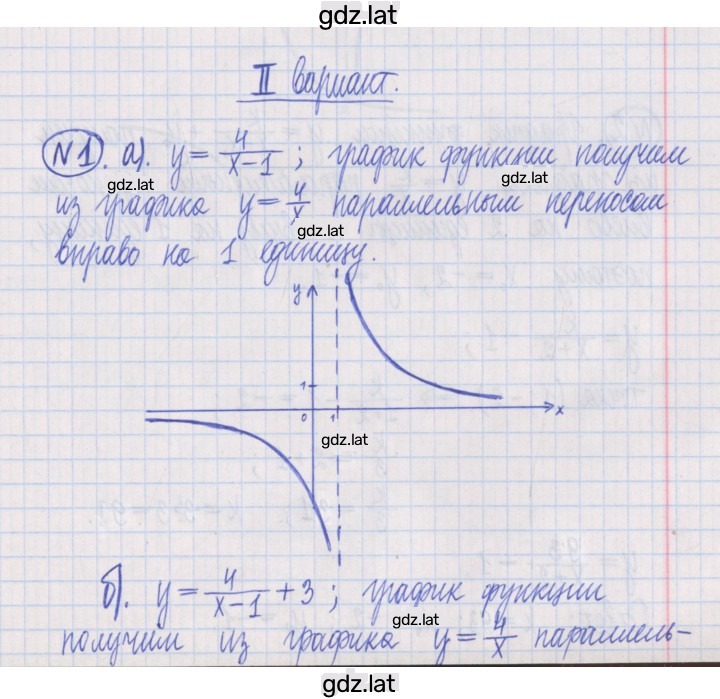 gdz.lat
II вариант.
№1. а). y = 4/(x-1) ; график функции получим
gdz.lat gdz.lat
из графика y = 4/x параллельным переносом
вправо на 1 единицу.
y
1
0 1 x
gdz.lat
б). y = 4/(x-1) + 3 ; график функции
gdz.lat gdz.lat
получим из графика y = 4/x параллель-
gdz.lat